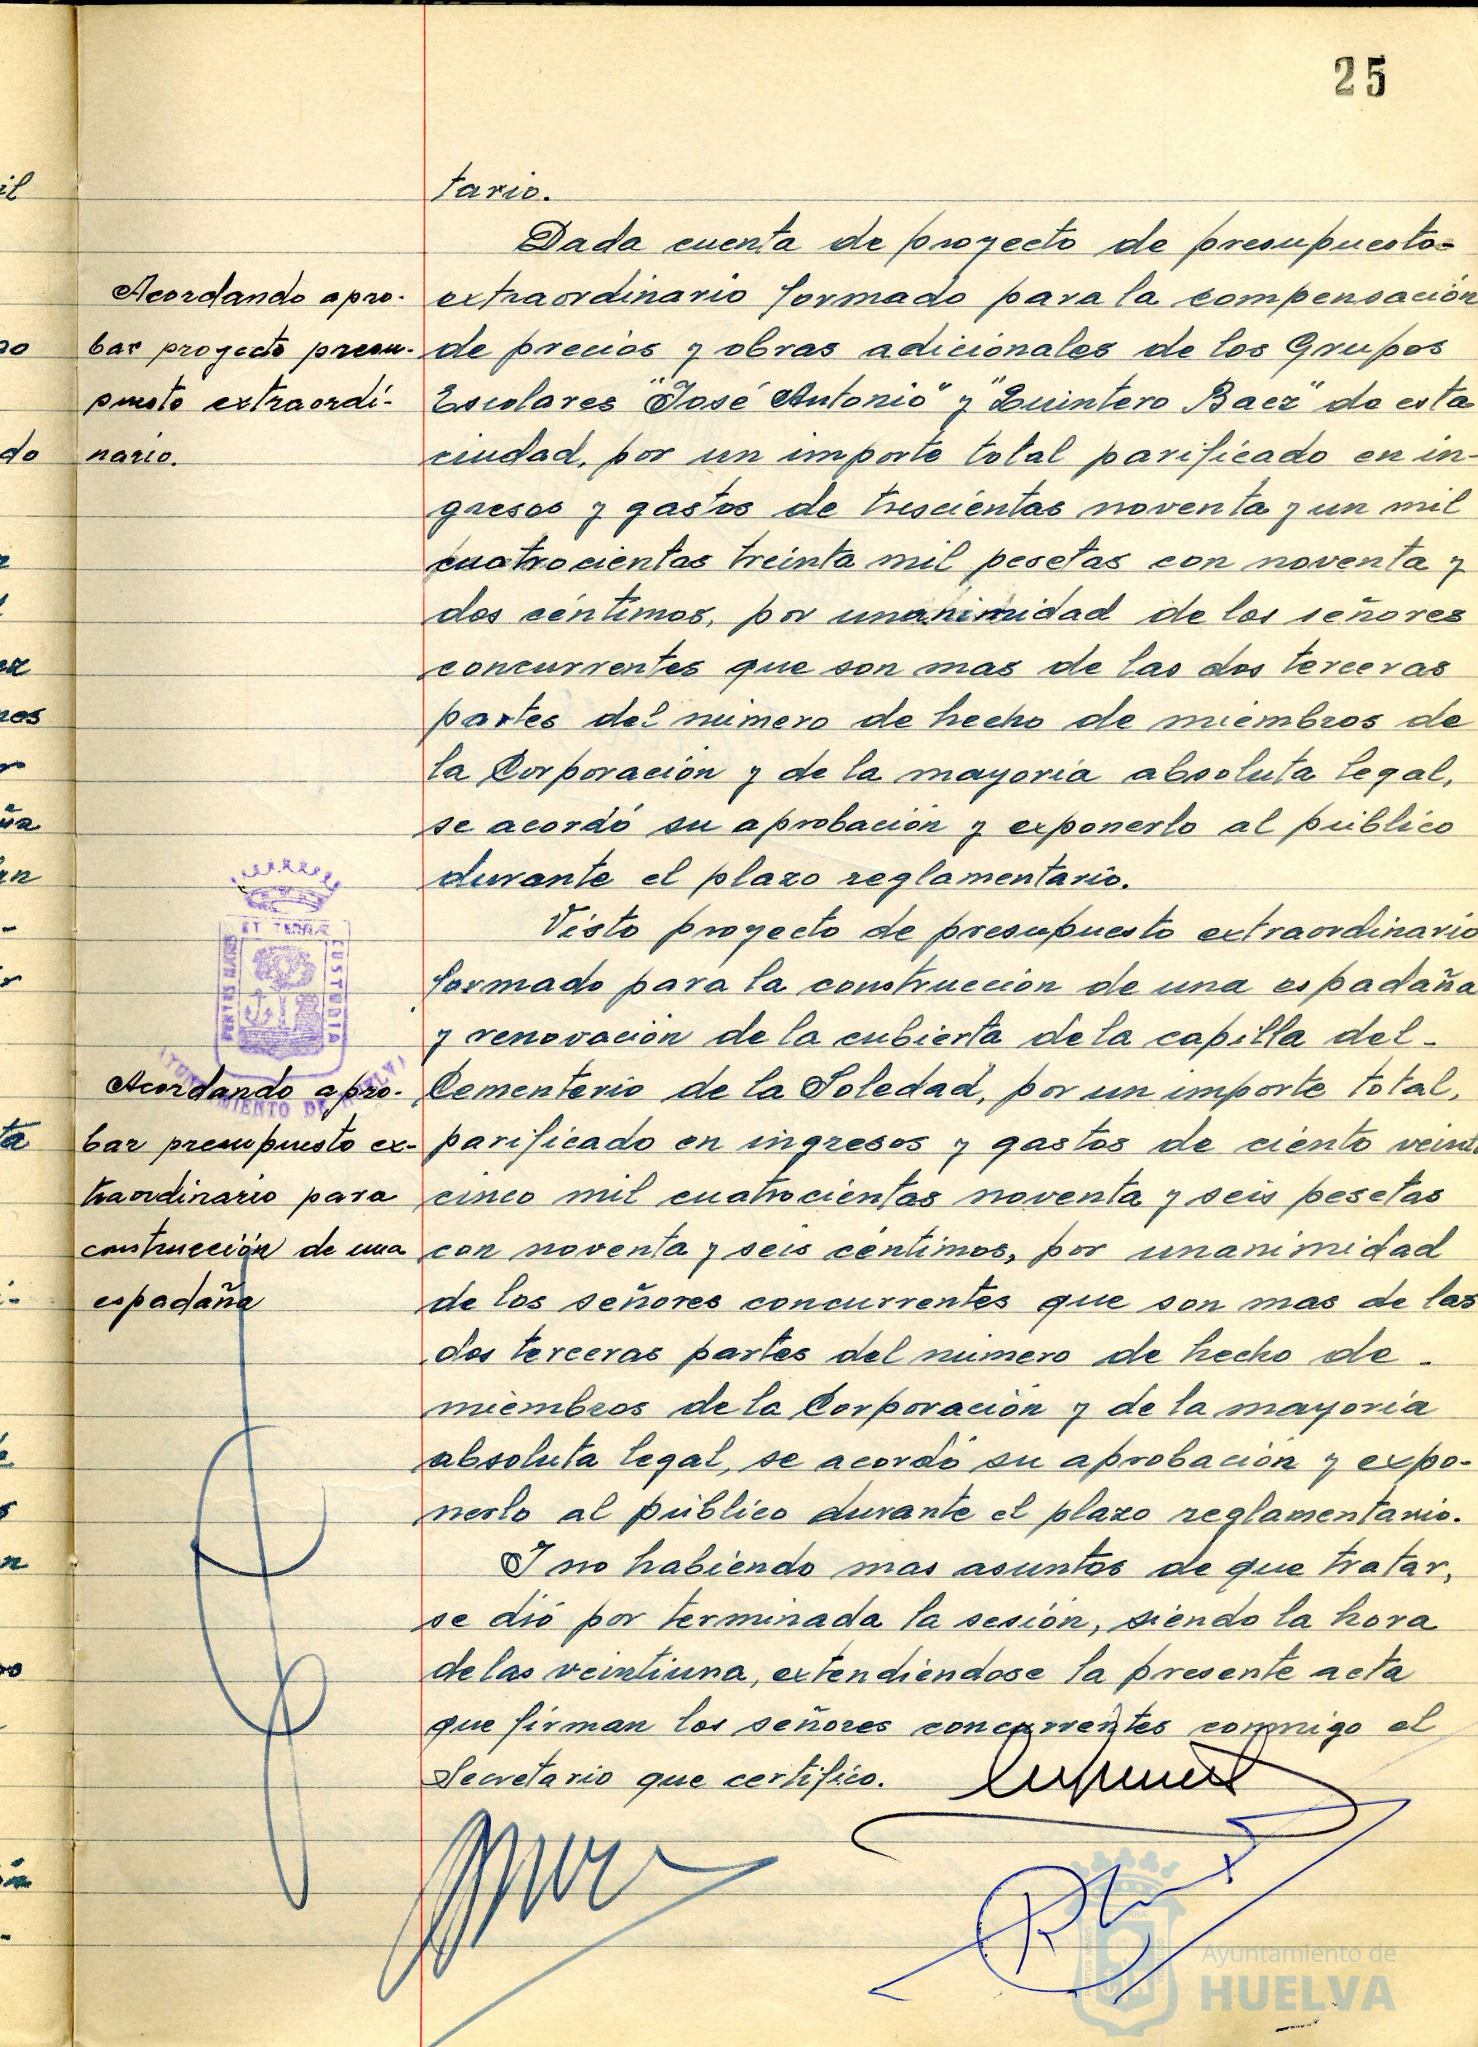 25
tario.
Dada cuenta de proyecto de presupuesto-
extraordinario formado para la compensación
de precios y obras adicionales de los Grupos
Escolares "José Antonio" y "Quintero Baez" de esta
ciudad, por un importe total parificado en in-
gresos y gastos de trescientas noventa y un mil
cuatrocientas treinta mil pesetas con noventa y
dos céntimos, por unanimidad de los señores
concurrentes que son mas de las dos terceras
partes del número de hecho de miembros de
la Corporación y de la mayoria absoluta legal,
se acordó su aprobación y exponerlo al público
durante el plazo reglamentario.
Visto proyecto de presupuesto extraordinario
formado para la construcción de una espadaña
y renovación de la cubierta de la capilla del-
Cementerio de la Soledad, por un importe total,
parificado en ingresos y gastos de ciento veinti
cinco mil cuatrocientas noventa y seis pesetas
con noventa y seis céntimos, por unanimidad
de los señores concurrentes que son mas de las
dos terceras partes del número de hecho de-
miembros de la Corporación y de la mayoria
absoluta legal, se acordó su aprobación y expo-
nerlo al público durante el plazo reglamentario.
Y no habiendo mas asuntos de que tratar,
se dió por terminada la sesión, siendo la hora
de las veintiuna, extendiéndose la presente acta
que firman los señores concurrentes conmigo el
Secretario que certifico.
Acordando apro-
bar proyecto presu-
puesto extraordi-
nario.
ET TERRÆ
PORTUS MARIS
CUSTODIA
AYUNTAMIENTO DE HUELVA
Acordando apro-
bar presupuesto ex-
traordinario para
construcción de una
espadaña
Ayuntamiento de
HUELVA